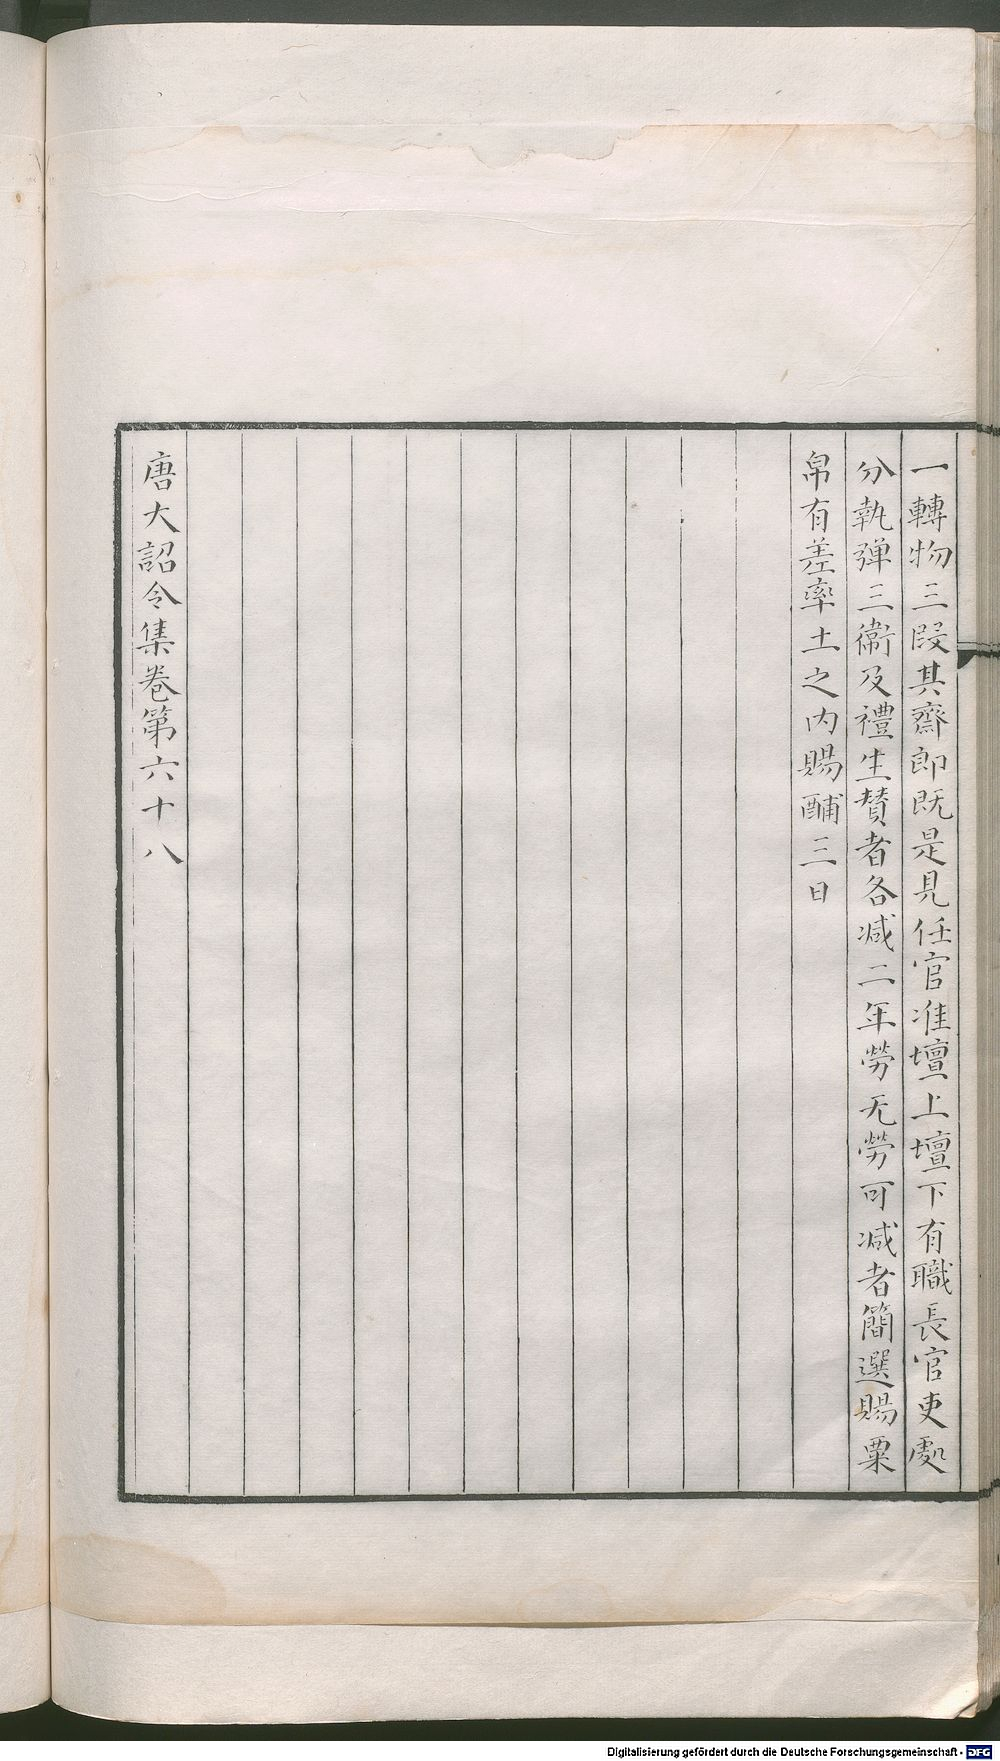 一轉物三段其齋郎既是見任官准壇上壇下有職長官吏處
分執彈三衛及禮生賛者各减二年勞无勞可减者簡選賜粟
帛有差率土之内賜酺三日
唐大詔令集卷第六十八
Digitalisierung gefördert durch die Deutsche Forschungsgemeinschaft - DFG